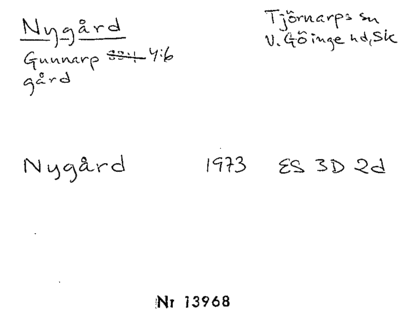 Nygård
Tjörnarps sn
Gunnarp 33:1 4:6
V. Göinge hd, Sk
gård
Nygård 1973 ES 3D 2d
Nr 13968